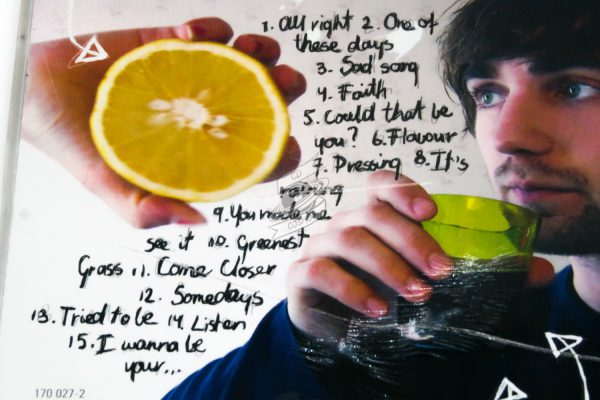 1. All right 2. One of
these days
3. Sad song
4. Faith
5. Could that be
you? 6. Flavour
7. Pressing 8. It's
raining
9. You made me
see it 10. Greenest
Grass 11. Come Closer
12. Somedays
13. Tried to be 14. Listen
15. I wanna be
your...
170 027-2